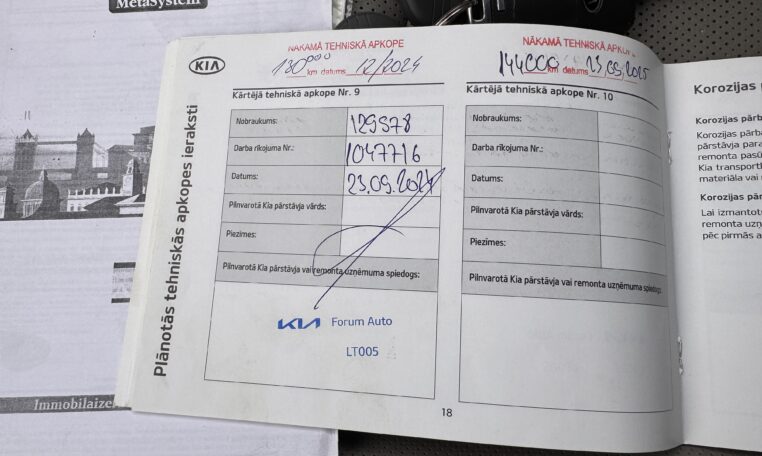 MetaSystem
Immobilaizer
Plānotās tehniskās apkopes ieraksti
KIA
NĀKAMĀ TEHNISKĀ APKOPE
130000 km datums 12/2024
Kārtējā tehniskā apkope Nr. 9
Nobraukums: 129578
Darba rīkojuma Nr.: 1047716
Datums: 23.09.2024
Pilnvarotā Kia pārstāvja vārds:
Piezīmes:
Pilnvarotā Kia pārstāvja vai remonta uzņēmuma spiedogs:
KIA Forum Auto
LT005
NĀKAMĀ TEHNISKĀ APKOPE
144000 km datums 23.09.2025
Kārtējā tehniskā apkope Nr. 10
Nobraukums:
Darba rīkojuma Nr.:
Datums:
Pilnvarotā Kia pārstāvja vārds:
Piezīmes:
Pilnvarotā Kia pārstāvja vai remonta uzņēmuma spiedogs:
18
Korozijas
Korozijas pārb
Korozijas pārba
pārstāvja para
remonta pasū
Kia transportl
materiāla vai
Korozijas pār
Lai izmantot
remonta uzņ
pēc pirmās a